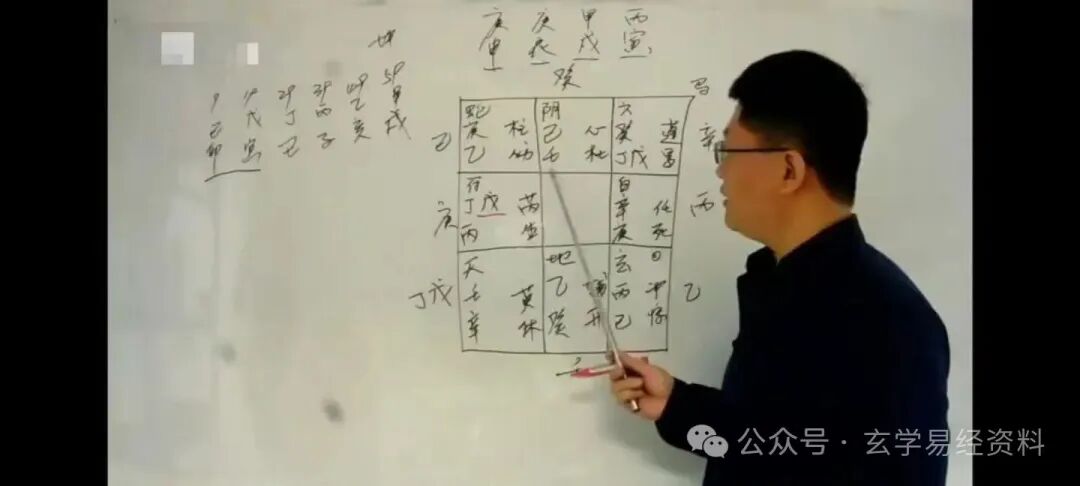 庚 庚 甲 丙
申 辰 戌 寅
癸
坤
己 戊 丁 丙 乙 甲
卯 寅 丑 子 亥 戌
马
蛇 阴 六
己 庚 柱 己 心 癸 蓬 辛
乙 伤 壬 杜 丁戊 景
符 白
庚 丁戊 芮 辛 任 丙
丙 生 庚 死
天 地 玄
丁戊 壬 英 乙 辅 丙 冲 乙
辛 休 癸 开 己 惊
公众号·玄学易经资料